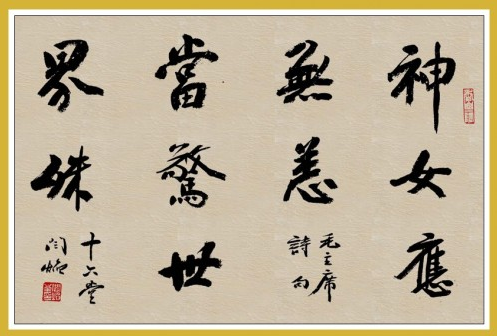 神女應
無恙
毛主席
詩句
當驚世
界殊
十六堂
閆